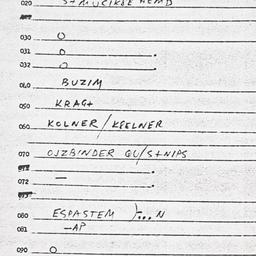 020
030 O
031 O
032 O
040 BUZIM
050 KRAGt
060 KOLNER/KEELNER
070 OJZBINDER GU/StNIPS
072 —
080 ESPASTEM )...N
081 —AP
090 O